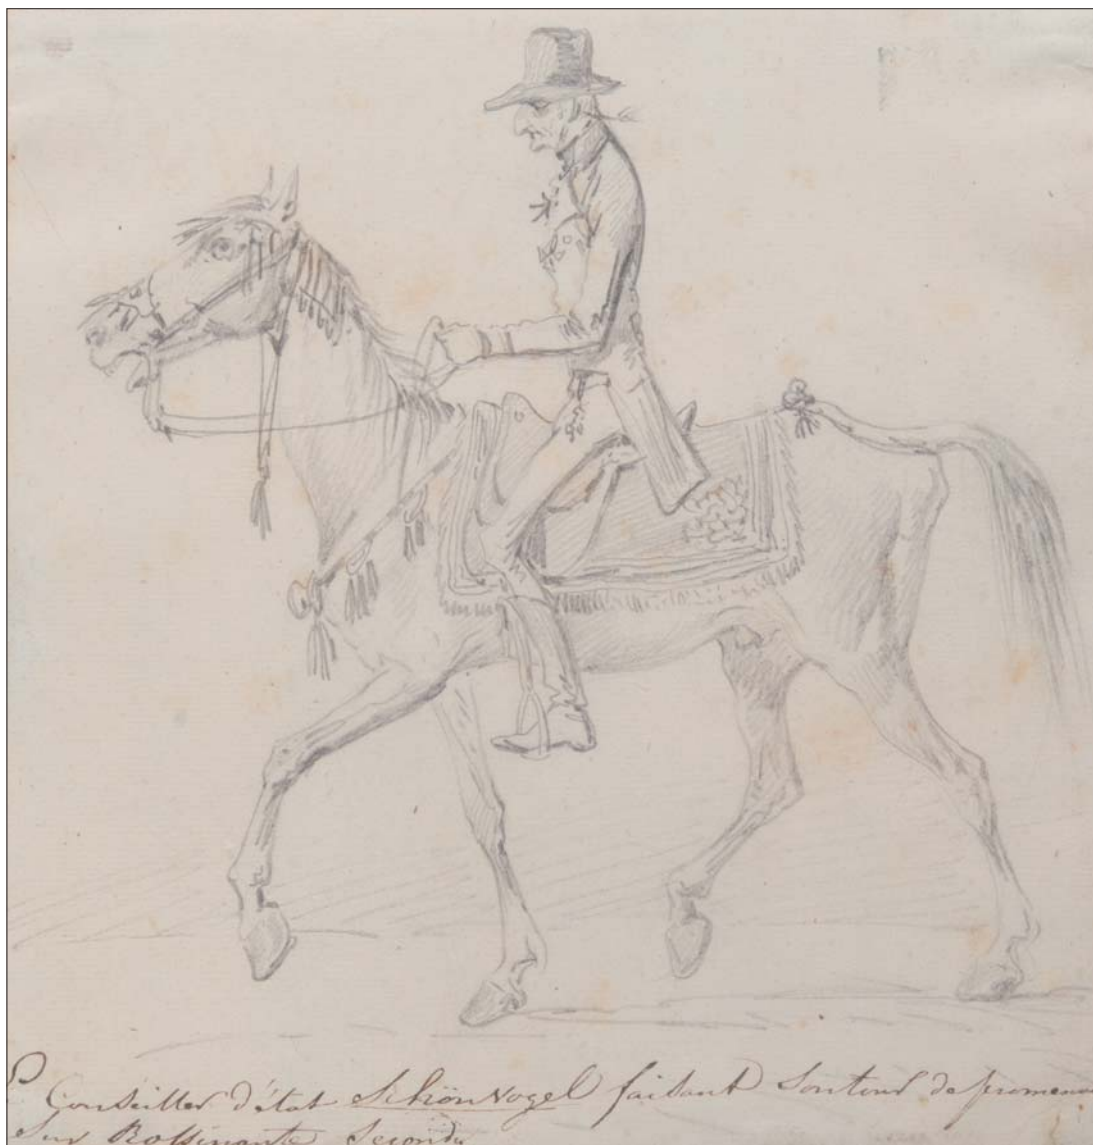 Conseiller d'état Schönvogel faisant son tour de promena
sur Rossinante Seconde